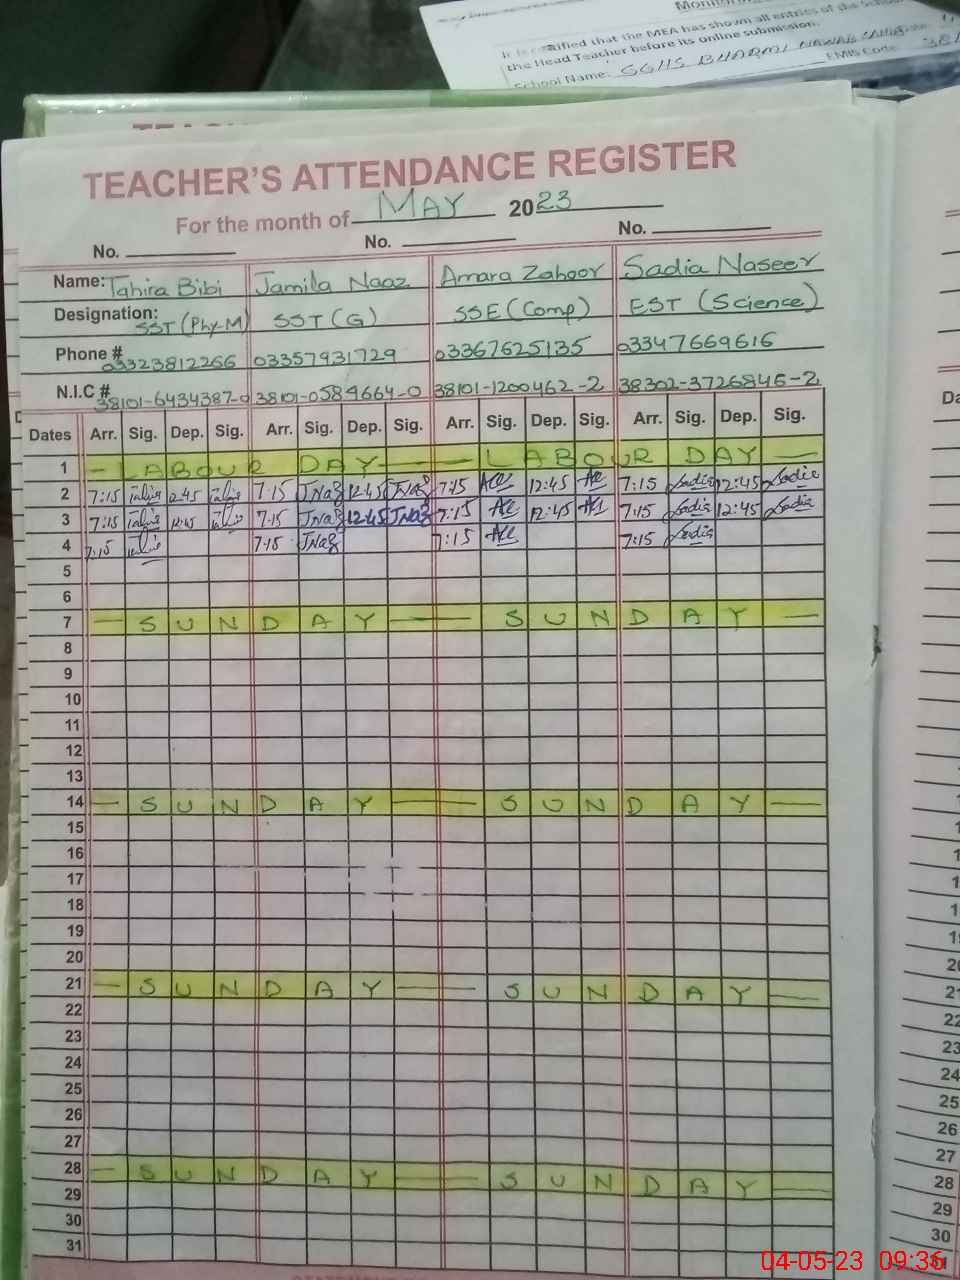 Monito
It is certified that the MEA has shown all entries of the School
the Head Teacher before its online submission.
School Name: EMIS Code
TEACHER'S ATTENDANCE REGISTER
For the month of MAY 2023
No. No. No.
Name: Tahira Bibi Jamila Naaz Amara Zahoor Sadia Naseer
Designation: SST (Phy-M) SST (G) SSE (Comp) EST (Science)
Phone # 03323812266 03357931729 03367625135 03347669616
N.I.C # 38101-6434387-0 38101-0584664-0 38101-1200462-2 38302-3726846-2
Dates Arr. Sig. Dep. Sig. Arr. Sig. Dep. Sig. Arr. Sig. Dep. Sig. Arr. Sig. Dep. Sig.
1 - LABOUR DAY - LABOUR DAY -
2 7:15 12:45 7:15 JNaz 12:45 JNaz 7:15 12:45 7:15 Sadia 12:45 Sadia
3 7:15 12:45 7:15 JNaz 12:45 JNaz 7:15 12:45 7:15 Sadia 12:45 Sadia
4 7:15 7:15 JNaz 7:15 7:15 Sadia
5
6
7 - SUNDAY - SUNDAY -
8
9
10
11
12
13
14 - SUNDAY - SUNDAY -
15
16
17
18
19
20
21 - SUNDAY - SUNDAY -
22
23
24
25
26
27
28 - SUNDAY - SUNDAY -
29
30
31
20
21
22
23
24
25
26
27
28
29
30
04-05-23 09:36